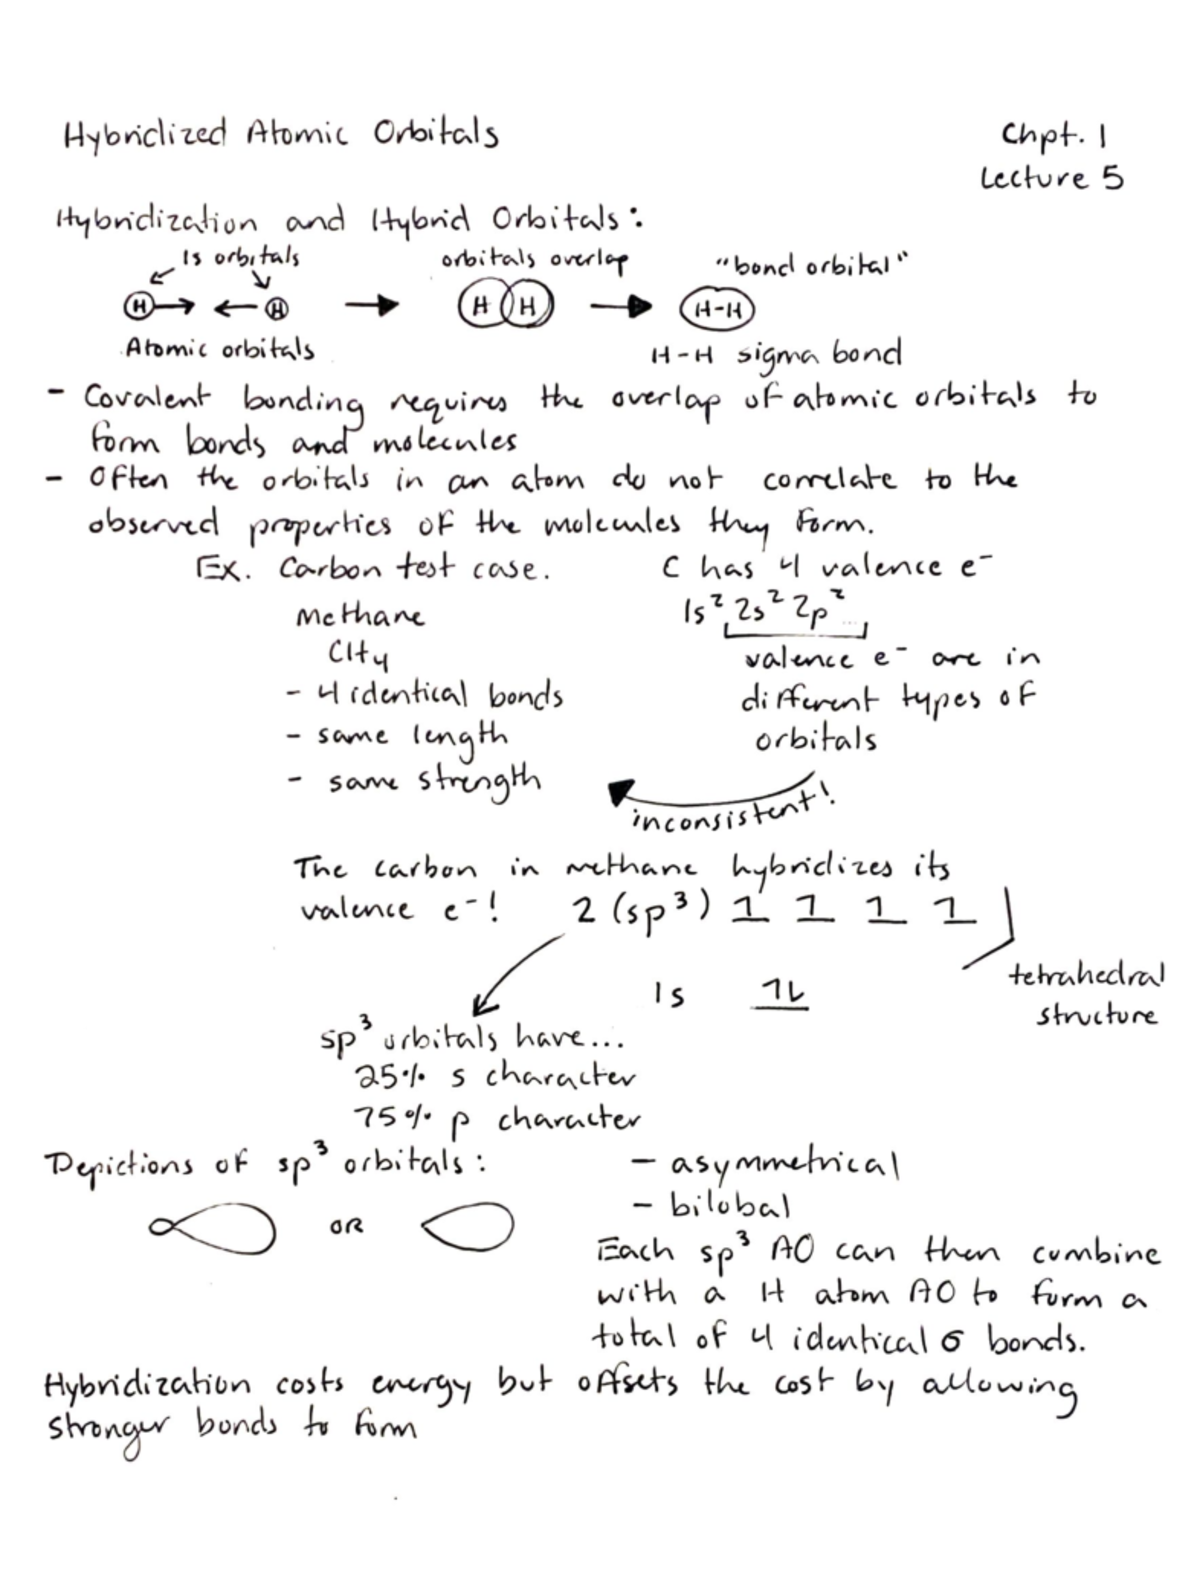 Hybridized Atomic Orbitals
Chpt. 1
Lecture 5
Hybridization and Hybrid Orbitals:
1s orbitals
orbitals overlap
"bond orbital"
H H
H H
H-H
Atomic orbitals
H-H sigma bond
- Covalent bonding requires the overlap of atomic orbitals to
form bonds and molecules
- Often the orbitals in an atom do not correlate to the
observed properties of the molecules they form.
Ex. Carbon test case.
C has 4 valence e⁻
Methane
1s² 2s² 2p²
CH₄
valence e⁻ are in
- 4 identical bonds
different types of
- same length
orbitals
- same strength
inconsistent!
The carbon in methane hybridizes its
valence e⁻! 2 (sp³) 1 1 1 1
tetrahedral
structure
1s 1L
sp³ orbitals have...
25% s character
75% p character
Depictions of sp³ orbitals:
- asymmetrical
- bilobal
OR
Each sp³ AO can then combine
with a H atom AO to form a
total of 4 identical σ bonds.
Hybridization costs energy but offsets the cost by allowing
stronger bonds to form